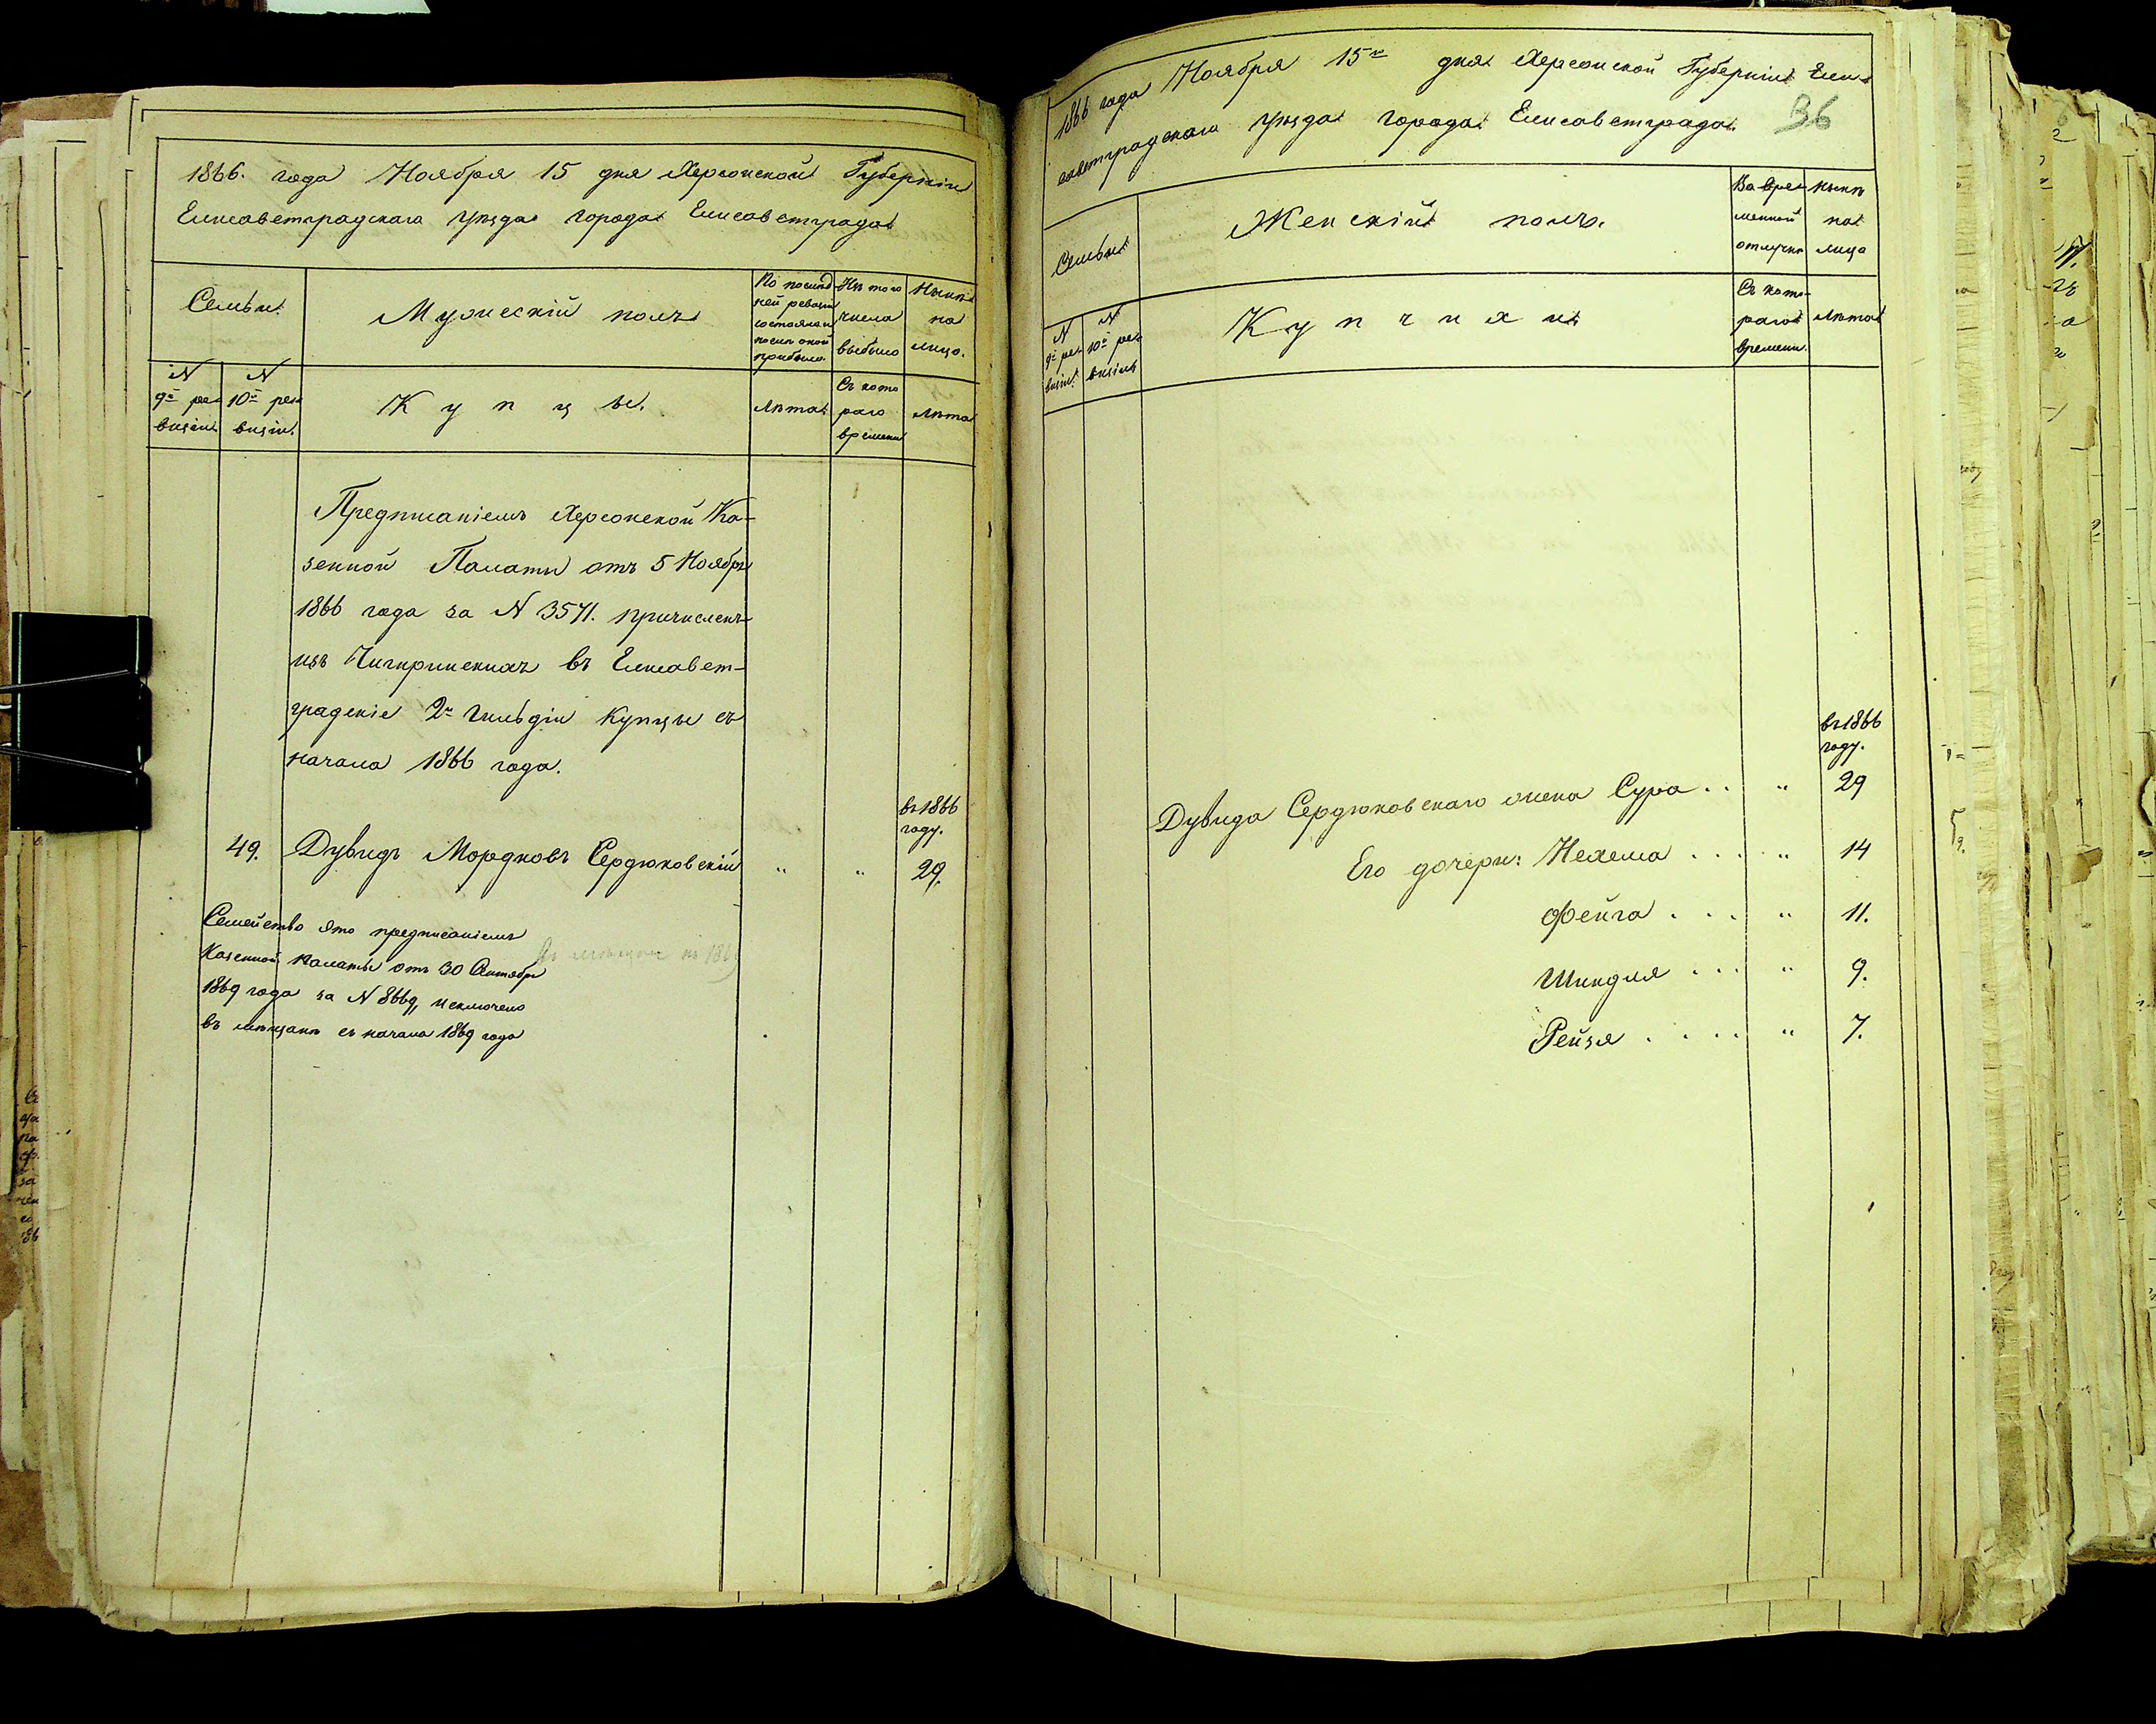 1866. года Ноября 15 дня Херсонской Губерніи
Елисаветградскаго уѣзда города Елисаветграда
Семьи.
Мужескій полъ
По послѣд
ней ревизіи
состояло и
послѣ оной
прибыло.
Изъ того
числа
выбыло
Нынѣ
на
лицо.
N
9й ре
визіи
N
10й ре
визіи.
Купцы.
Лѣта
Съ кото
раго
времени
Лѣта
Предписаніемъ Херсонской Ка-
зенной Палаты отъ 5 Ноября
1866 года за N 3571. причисленъ
изъ Чигиринскихъ въ Елисавет-
градскіе 2й гильдіи купцы съ
начала 1866 года.
въ 1866
году.
49. Дувидъ Мордковъ Сердюковскій " " 29.
Семейство это предписаніемъ
Казенной Палаты отъ 30 Октября
1869 года за N 8669, исключено
въ мѣщане съ начала 1869 года
1866 года Ноября 15го дня Херсонской Губерніи Ели-
саветградскаго уѣзда города Елисаветграда.
36
Семьи
Женскій полъ.
Во вре-
менной
отлучкѣ
Нынѣ
на
лицо
N
9й ре
визіи.
N
10й ре
визіи
Купчихи
Съ кото-
раго
времени.
Лѣта
въ 1866
году.
Дувида Сердюковскаго жена Сура . . " 29
Его дочери: Нехема . . . " 14
Фейга . . . " 11.
Шиндля . . . " 9.
Рейзя . . . . " 7.